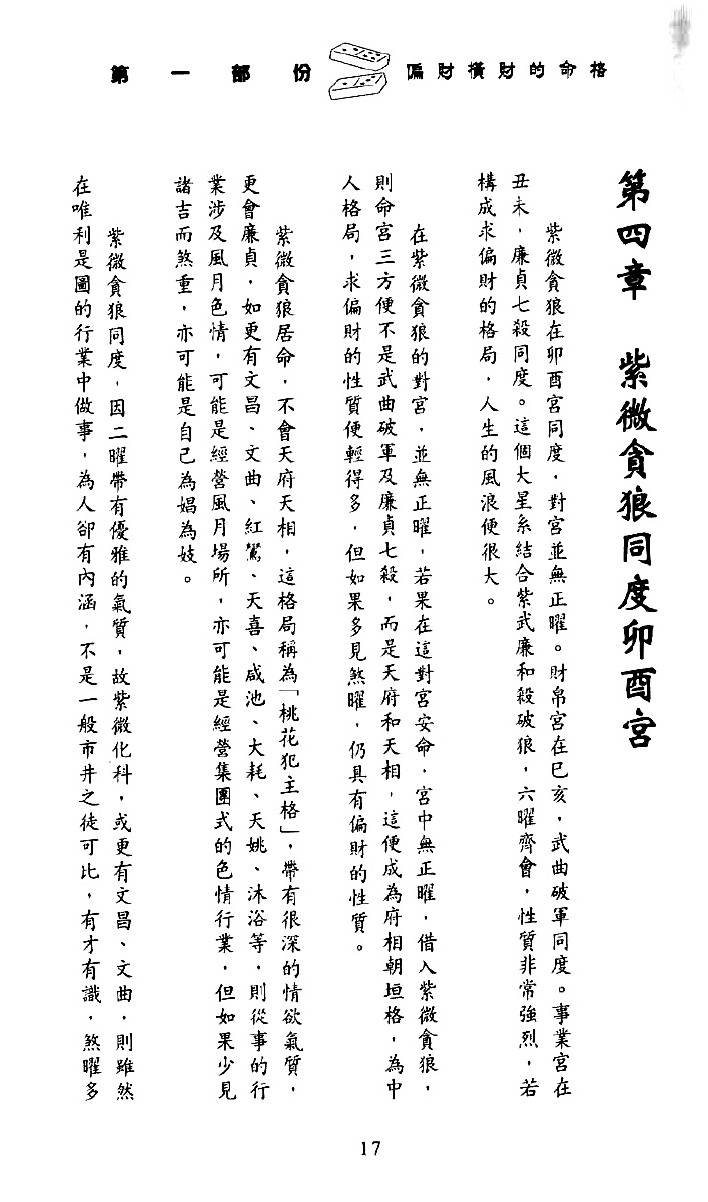 第一部份 偏財橫財的命格
第四章 紫微貪狼同度卯酉宮
紫微貪狼在卯酉宮同度，對宮並無正曜。財帛宮在巳亥，武曲破軍同度。事業宮在
丑未，廉貞七殺同度。這個大星系結合紫武廉和殺破狼，六曜齊會，性質非常強烈，若
構成求偏財的格局，人生的風浪便很大。
在紫微貪狼的對宮，並無正曜，若果在這對宮安命，宮中無正曜，借入紫微貪狼，
則命宮三方便不是武曲破軍及廉貞七殺，而是天府和天相，這便成為府相朝垣格，為中
人格局，求偏財的性質便輕得多，但如果多見煞曜，仍具有偏財的性質。
紫微貪狼居命，不會天府天相，這格局稱為「桃花犯主格」，帶有很深的情欲氣質，
更會廉貞，如更有文昌、文曲、紅鸞、天喜、咸池、大耗、天姚、沐浴等，則從事的行
業涉及風月色情，可能是經營風月場所，亦可能是經營集團式的色情行業，但如果少見
諸吉而煞重，亦可能是自己為娼為妓。
紫微貪狼同度，因二曜帶有優雅的氣質，故紫微化科，或更有文昌、文曲，則雖然
在唯利是圖的行業中做事，為人卻有內涵，不是一般市井之徒可比，有才有識，煞曜多
17